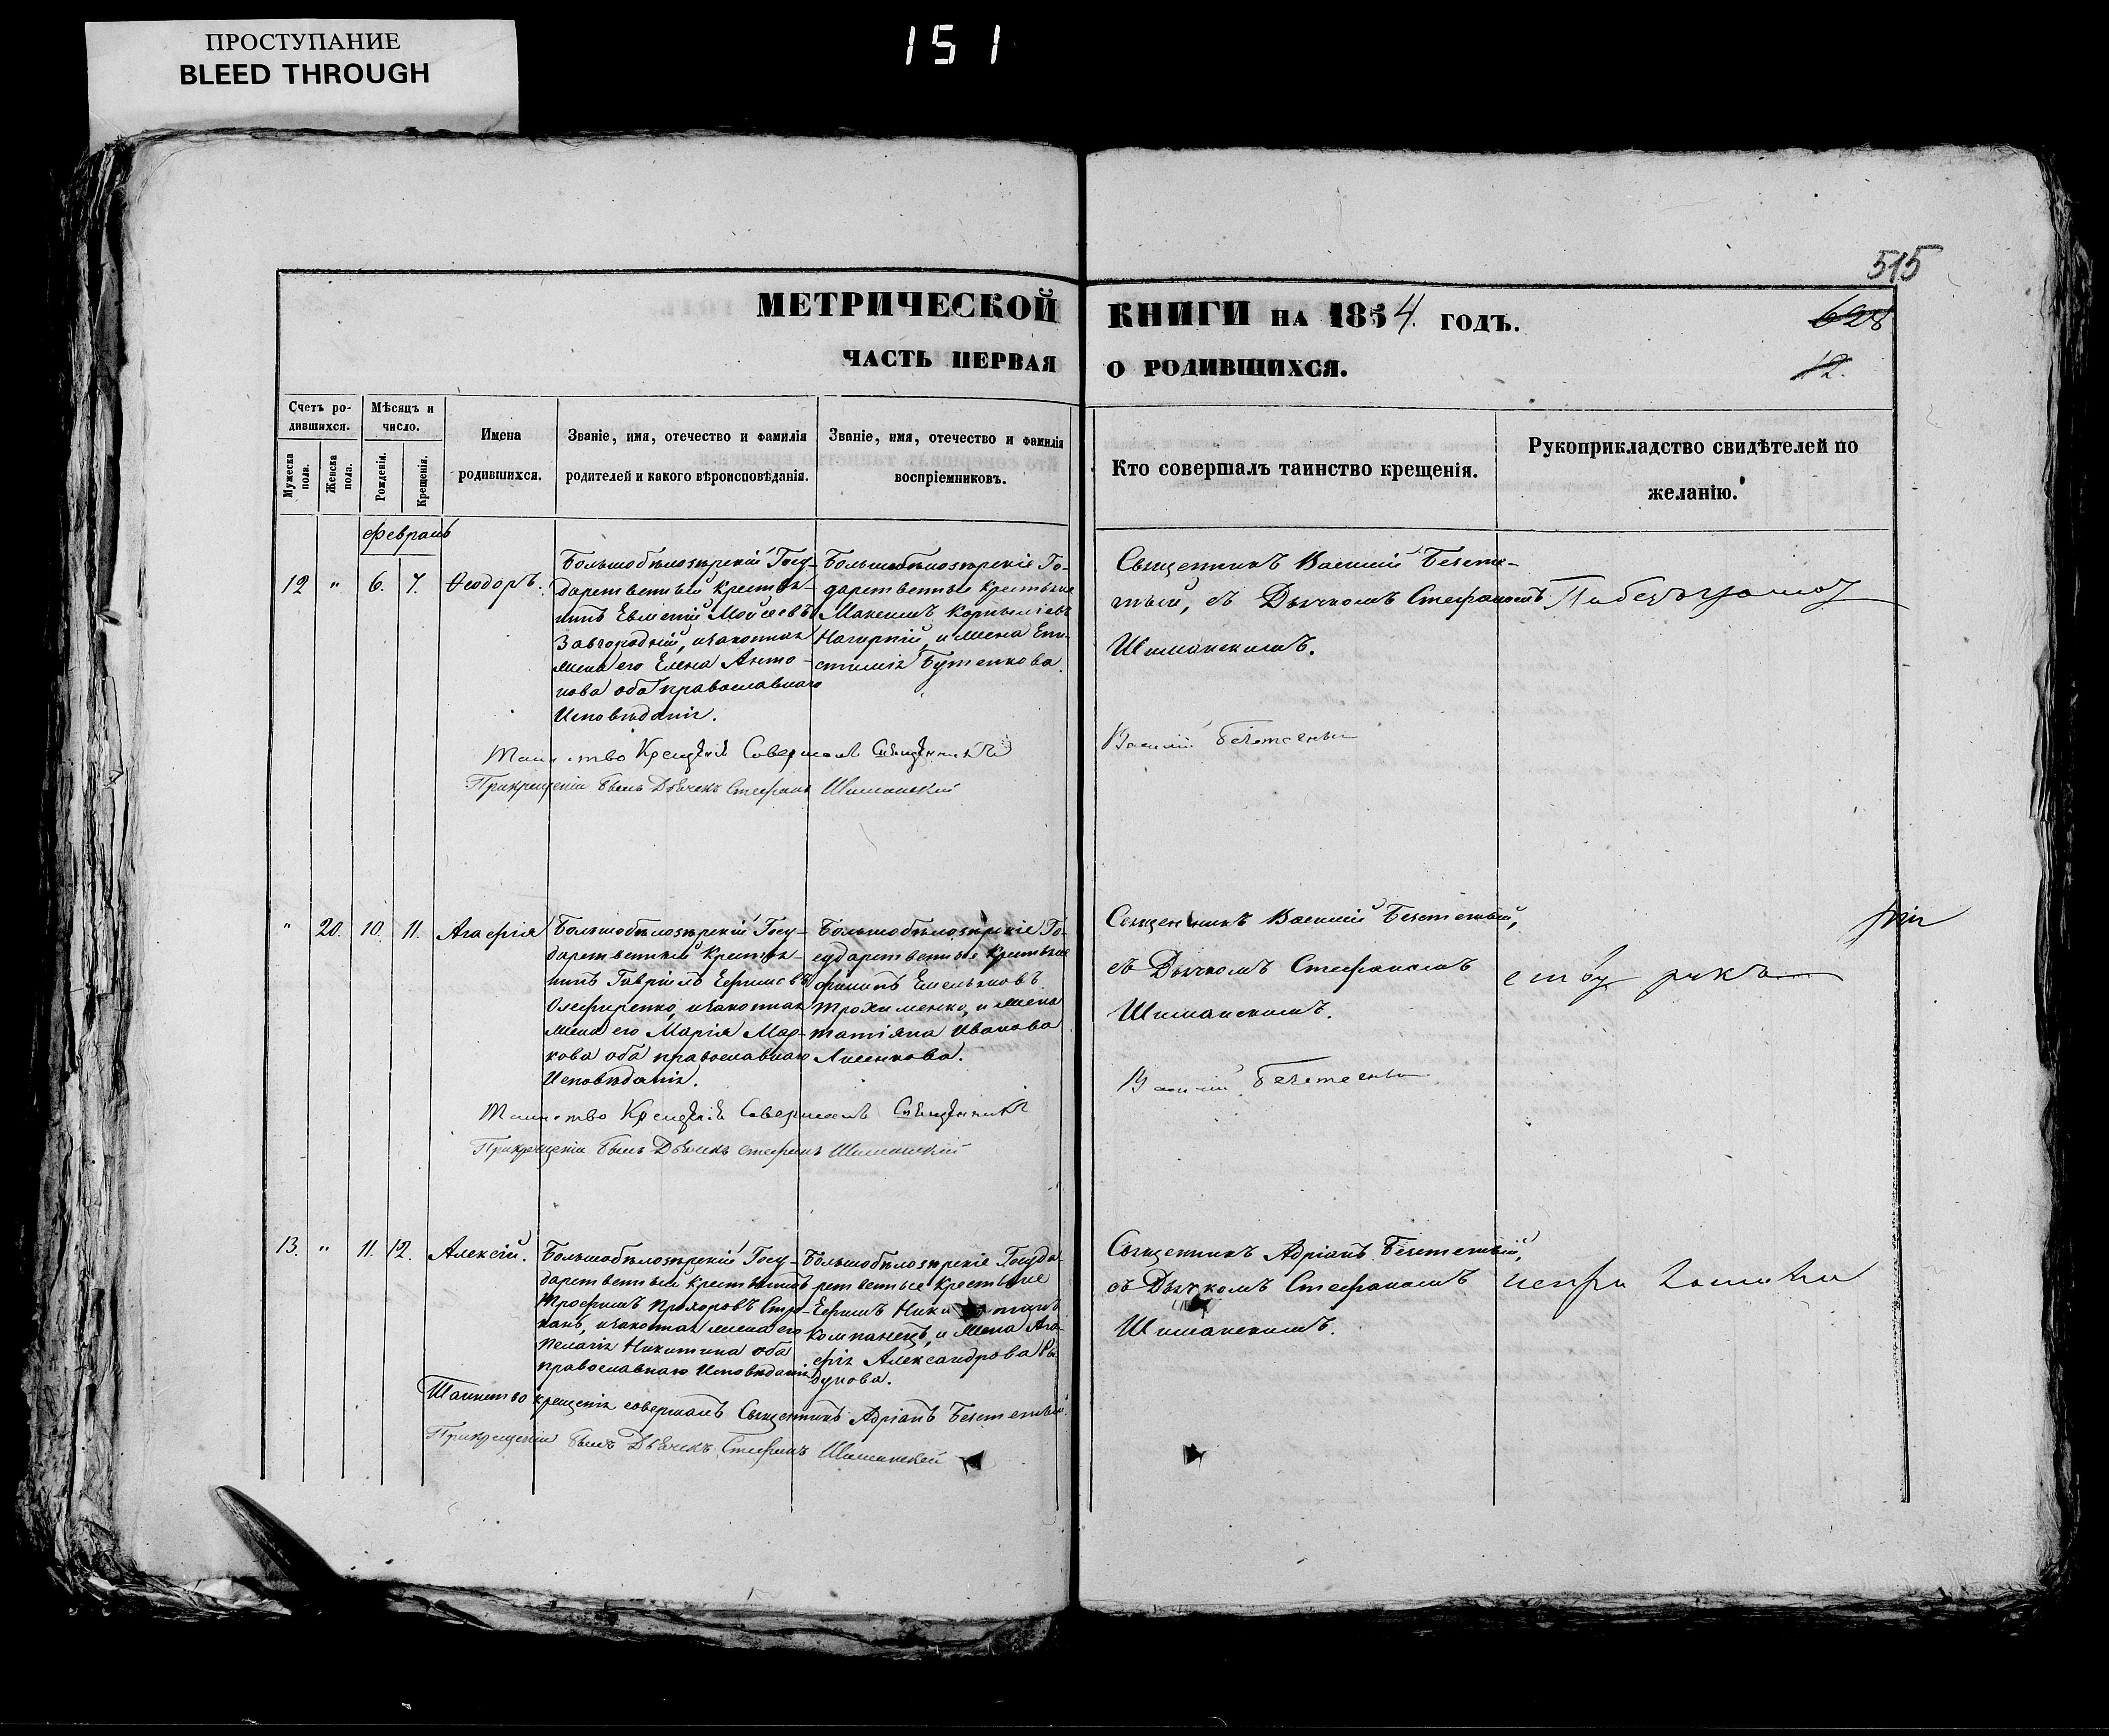 ПРОСТУПАНИЕ
BLEED THROUGH
151
515
МЕТРИЧЕСКОЙ КНИГИ НА 1854. ГОДЪ.
628
ЧАСТЬ ПЕРВАЯ О РОДИВШИХСЯ.
12.
Счетъ ро-
дившихся.
Мужеска пола.
Женска пола.
Мѣсяцъ и
число.
Рожденія.
Крещенія.
Имена
родившихся.
Званіе, имя, отечество и фамилія
родителей и какого вѣроисповѣданія.
Званіе, имя, отечество и фамилія
воспріемниковъ.
Кто совершалъ таинство крещенія.
Рукоприкладство свидѣтелей по
желанію.
Февраль
12 " 6. 7. Ѳеодоръ.
Большобѣлозѣрскій Госу-
дарственный крестья-
нинъ Евменій Мойсеевъ
Завгородній, изаконная
жена его Елена Анто-
нова оба православнаго
Исповѣданія.
Большобѣлозѣрскіе Го-
дарственные крестьяне
Максимъ Корнилиевъ
Нагирній, и жена Епи-
стимія Бутенкова.
Священникъ Василій
съ Дьячкомъ Стефаномъ
Шиманскимъ.
Таинство Крещенія Совершалъ Священникъ
Василій
Прикрещеніи былъ Дьячекъ Стефанъ Шиманскій
" 20. 10. 11. Агафія
Большобѣлозѣрскій Госу-
дарственный Крестья-
нинъ Гавріилъ Ефимовъ
Олефиренко, изаконная
жена его Марія Мар-
кова оба православнаго
Исповѣданія.
Большобѣлозѣрскіе Го-
сударственные Крестьяне
Филипъ Емельяновъ
Трохименко, и жена
Татіяна Иванова
Лисенкова.
Священникъ Василій
съ Дьячкомъ Стефаномъ
Шиманскимъ.
Таинство Крещенія Совершалъ Священникъ
Василій
Прикрещеніи былъ Дьячекъ Стефанъ Шиманскій
13. " 11. 12. Алексій.
Большобѣлозѣрскій Госу-
дарственный крестьянинъ
Трофимъ Прохоровъ
изаконная жена его
Пелагія Никитина оба
православнаго Исповѣданія
Большобѣлозѣрскіе Госуда-
рственные Крестьяне
Ефимъ
Компанецъ, и жена Ага-
фія Александрова
Священникъ Адріанъ
съ Дьячкомъ Стефаномъ
Шиманскимъ.
Таинство крещенія совершалъ Священникъ Адріанъ
Прикрещеніи былъ Дьячекъ Стефанъ Шиманскій